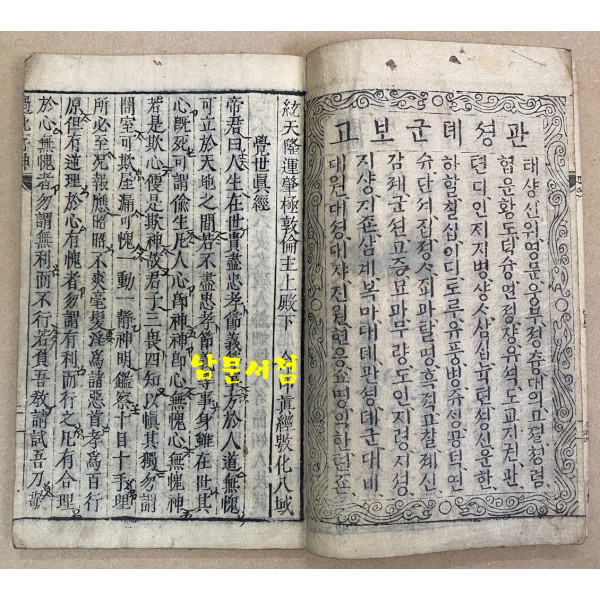 관셩뎨군보고
태샹신위영문웅무졍츙대의고졀쳥렴
협운황도덕슝연졍쟝유셕도교지권관
텬디인지지병샹ᄉᆞ삼십뉵텬셩신운한
하할칠십이디토루유풍병슈셩공덕연
감졔군션고증묘마무량도인지령지셩
지샹지존삼계복마대뎨관셩뎨군대비
대원대셩대쟈진원현응쇼명익한텬존
統天隆運肇極敦倫主上殿下 眞經敷化八域
覺世眞經
帝君曰人生在世貴盡忠孝節義 方於人道無愧
可立於天地之間若不盡忠孝節 事身雖在世其
心旣死可謂偸生凡人心卽神神卽心無愧心無愧神
若是欺心便是欺神故君子三畏四知以愼其獨勿謂
闇室可欺屋漏可愧一動一靜神明鑑察十目十手理
所必至况報應昭昭不爽毫髮淫爲諸惡首孝爲百行
原但有逆理於心有愧者勿謂有利而行之凡有合理
於心無愧者勿謂無利而不行若負吾敎請試吾刀敬
過化存神
남문서점